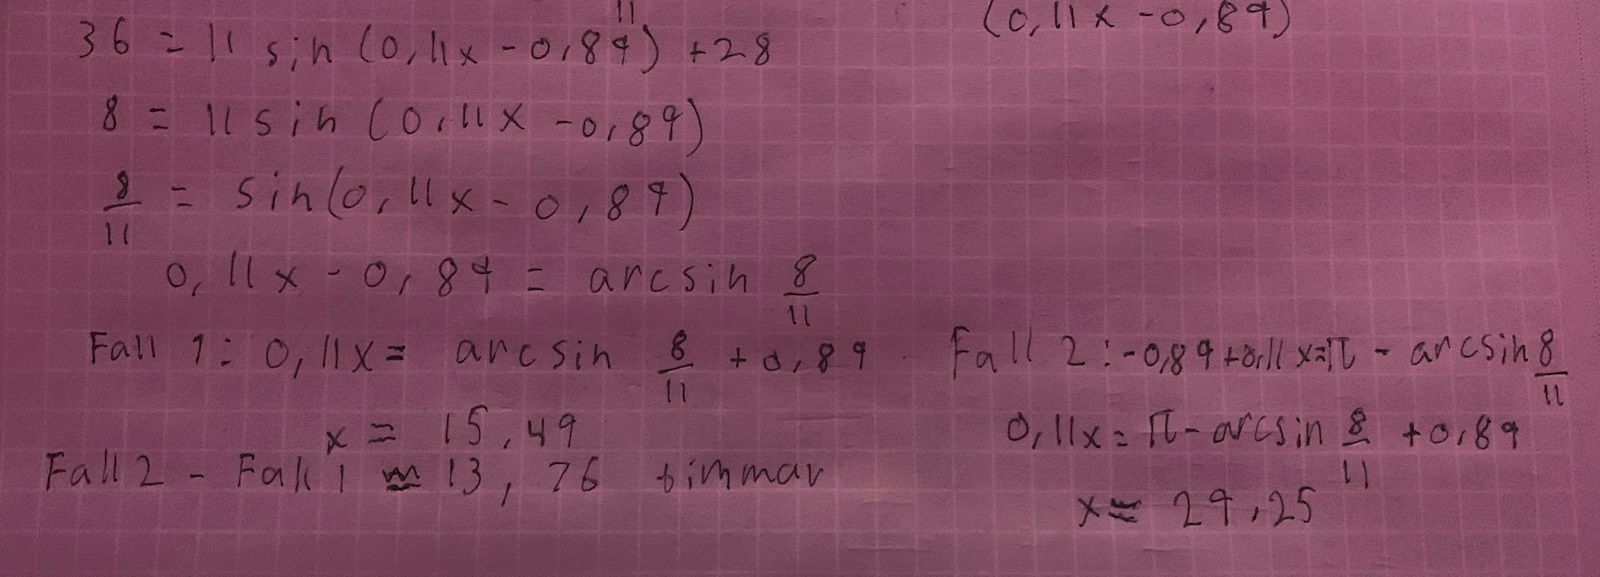 (0,11x -0,89)
36 = 11 sin (0,11x - 0,89) +28
8 = 11 sin (0,11x -0,89)
8/11 = sin(0,11x - 0,89)
0,11x - 0,89 = arcsin 8/11
Fall 1: 0,11x = arcsin 8/11 + 0,89
x = 15,49
Fall 2: -0,89+0,11x=π - arcsin 8/11
0,11x = π - arcsin 8/11 +0,89
x ≈ 29,25
Fall 2 - Fall 1 ≈ 13,76 timmar